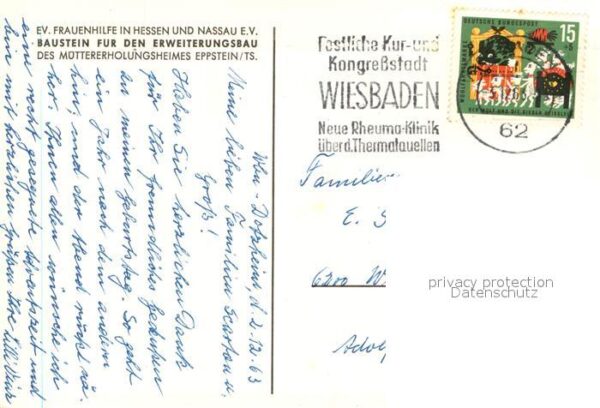 EV. FRAUENHILFE IN HESSEN UND NASSAU E.V.
BAUSTEIN FÜR DEN ERWEITERUNGSBAU
DES MÜTTERERHOLUNGSHEIMES EPPSTEIN/TS.
Wbn-Dotzheim, d. 2.12.63
Meine lieben Familien u.
Groß!
Haben Sie herzlichen Dank
für Ihr freundliches Gedenken
zu meinem Geburtstag. So geht
ein Jahr nach dem andern
hin, und der Abend rückt nä-
her. Ihnen allen wünsche ich
eine recht gesegnete Adventszeit und
bin mit herzlichen Grüßen Ihre
Festliche Kur- und
Kongreßstadt
WIESBADEN
Neue Rheuma-Klinik
über d. Thermalquellen
DEUTSCHE BUNDESPOST
15
+5
WOHLFAHRTSMARKE
DER WOLF UND DIE SIEBEN GEISSLEIN
62
Familie
E. S
6200 W
Adol
privacy protection
Datenschutz